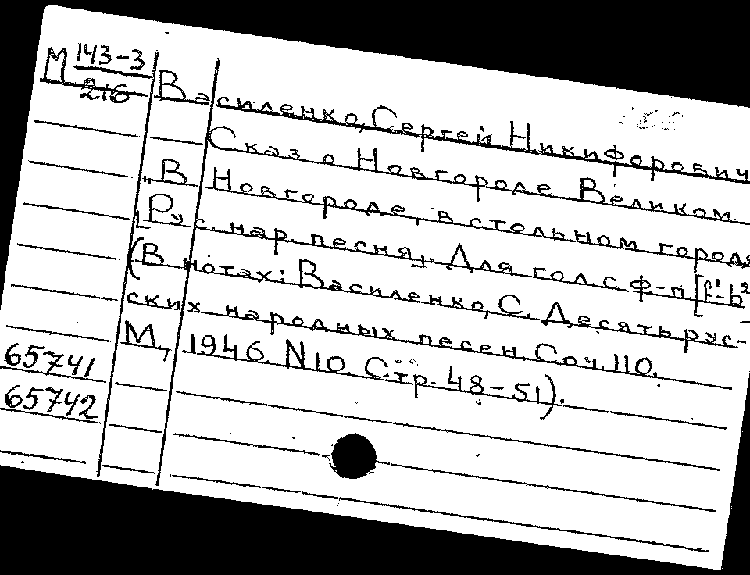 М 143-3
216
Василенко, Сергей Никифорович
Сказ о Новгороде Великом
„В Новгороде, в стольном городе
Рус. нар. песня. Для гол. с ф-п [f¹-b²
(В нотах: Василенко, С. Десять рус-
ских народных песен, Соч. 110.
М., 1946 N10 Стр. 48-51).
65741
65742